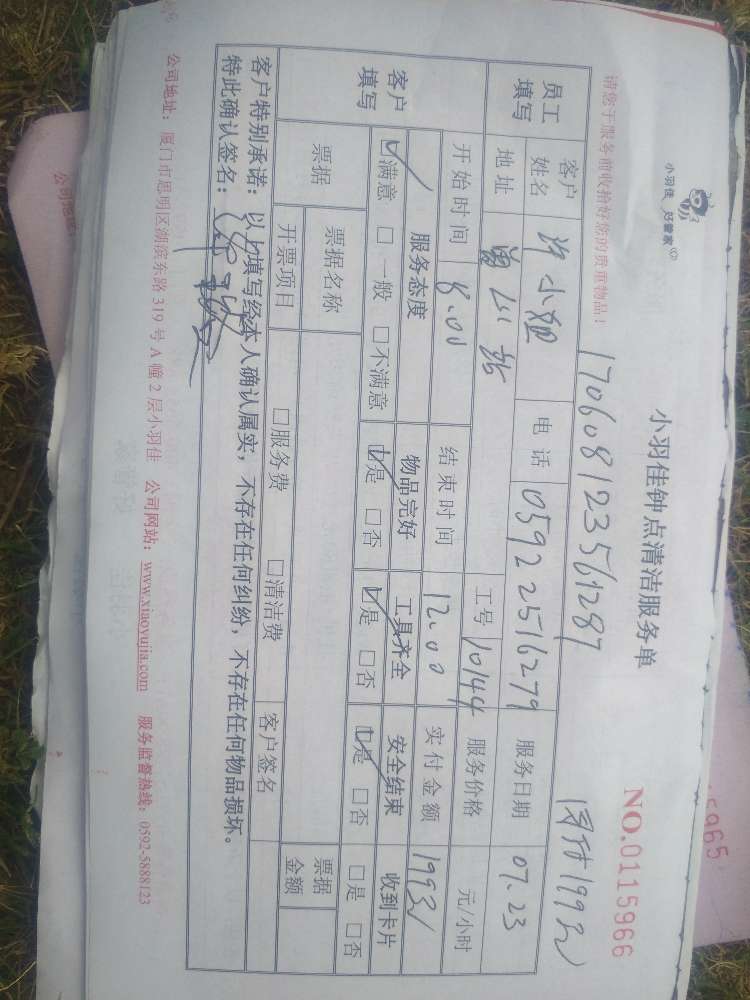 小羽佳 好管家
小羽佳钟点清洁服务单
NO.0115966
请您于服务前收拾好您的贵重物品！
170608123561287
199元
员工填写 客户姓名 许小姐 电话 0592 2516279 服务日期 07.23
地址 工号 10144 服务价格 元/小时
开始时间 8.00 结束时间 12.00 实付金额 199元
客户填写 服务态度 物品完好 工具齐全 安全结束 收到卡片
☑满意 □一般 □不满意 ☑是 □否 ☑是 □否 ☑是 □否 □是 □否
票据 票据名称 票据金额
开票项目 □服务费 □清洁费 客户签名
客户特别承诺：以上填写经本人确认属实，不存在任何纠纷，不存在任何物品损坏。
特此确认签名：
公司地址：厦门市思明区湖滨东路319号A幢2层小羽佳 公司网站：www.xiaoyujia.com 服务监督热线：0592-5888123
公司地址
15965